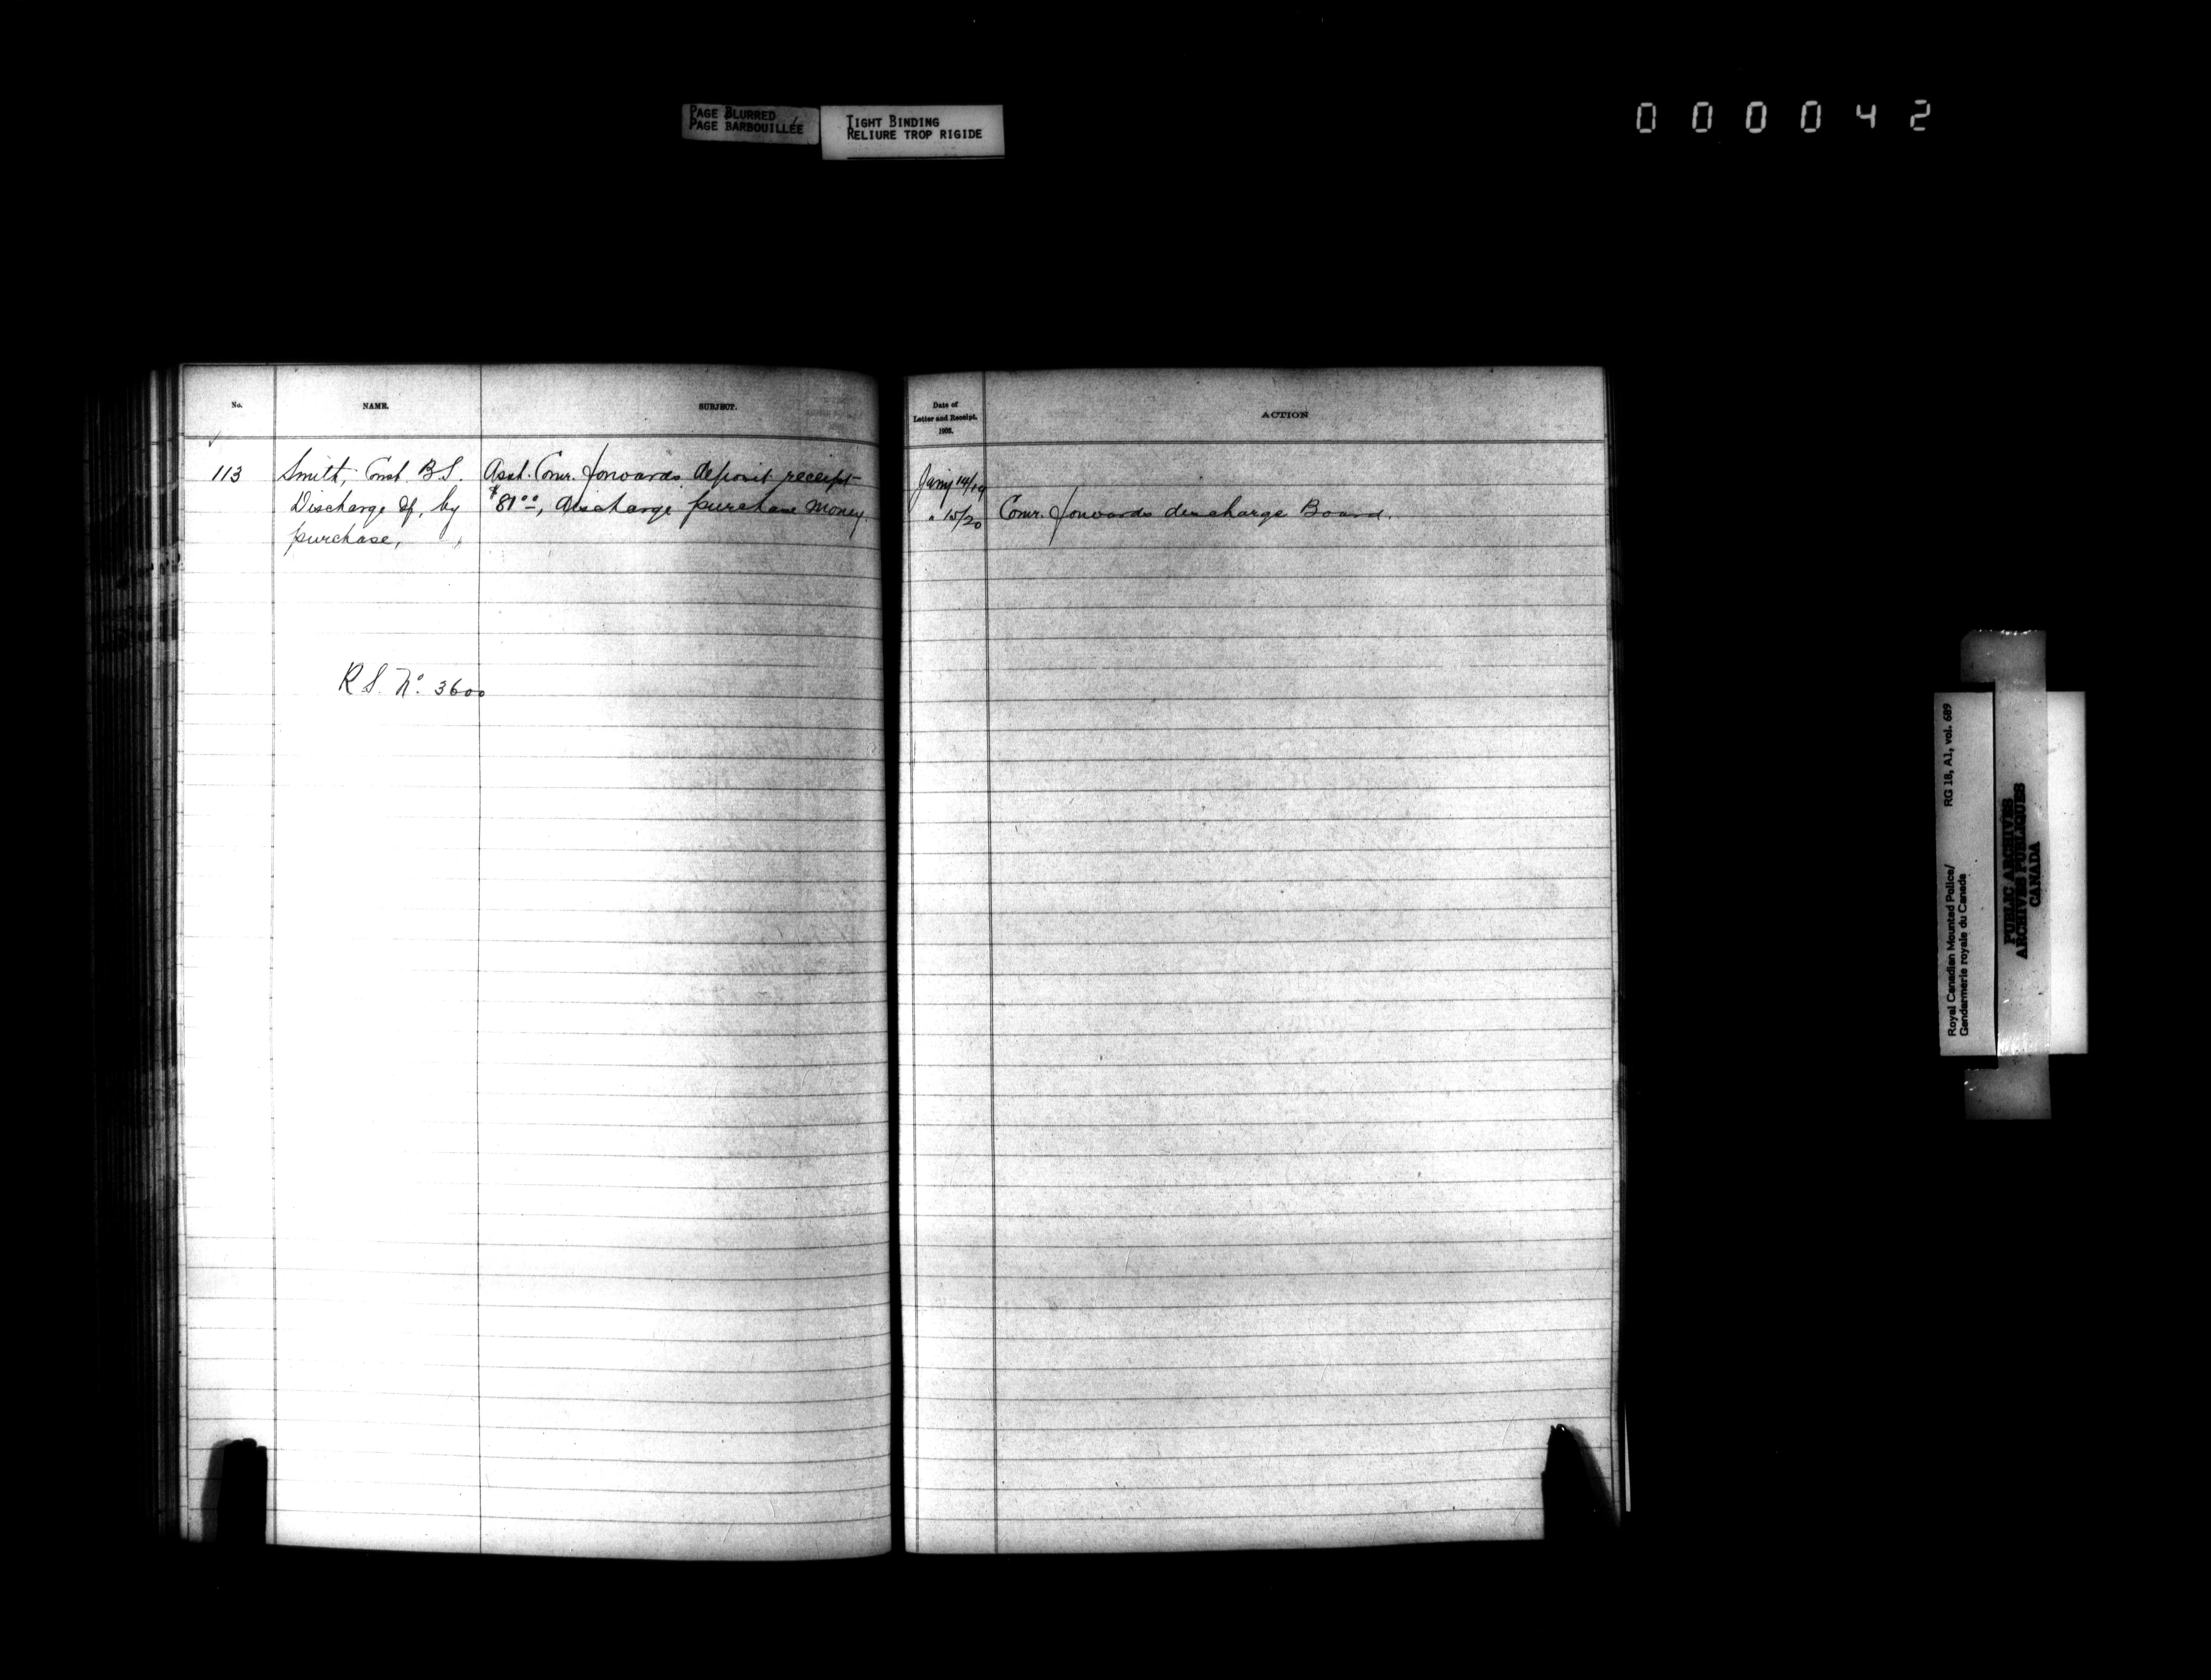 PAGE BLURRED
PAGE BARBOUILLÉE
TIGHT BINDING
RELIURE TROP RIGIDE
000042
No.
NAME.
SUBJECT.
Date of
Letter and Receipt.
ACTION
113
Smith, Const. B.S.
Discharge of, by
purchase,
Asst. Comr. forwards deposit receipt
$81.00, discharge purchase money.
Jany 14/19
" 15/20
Comr. forwards discharge Board.
R S. No. 3600
Royal Canadian Mounted Police/
Gendarmerie royale du Canada
RG 18, A1, vol. 689
PUBLIC ARCHIVES
ARCHIVES PUBLIQUES
CANADA